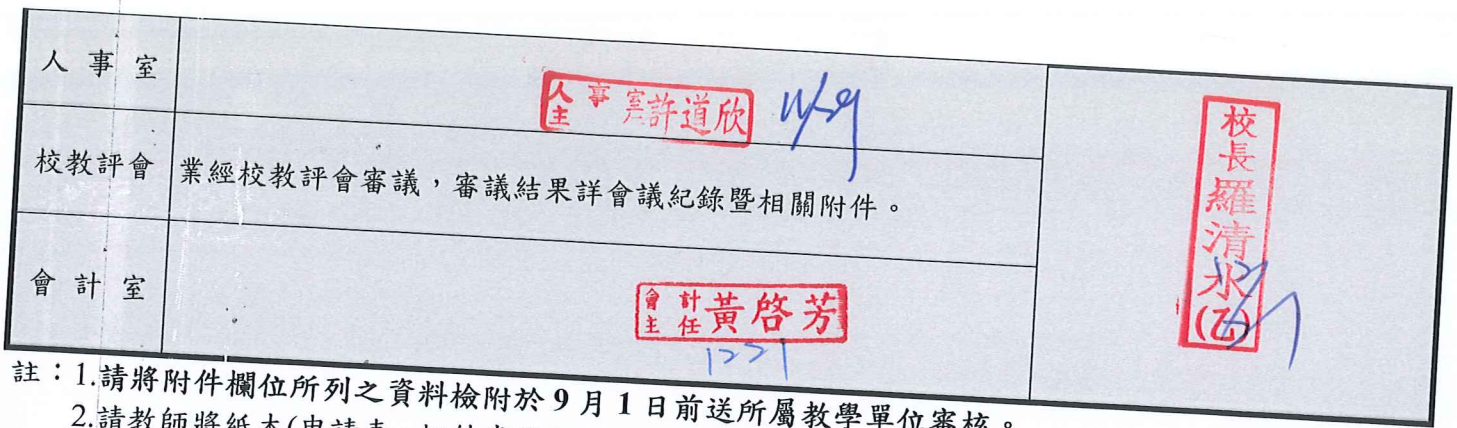 人事室
人事室主 許道欣 11/29
校教評會
業經校教評會審議，審議結果詳會議紀錄暨相關附件。
會計室
會計主任 黃啓芳
1221
校長羅清水(乙)
註：1.請將附件欄位所列之資料檢附於9月1日前送所屬教學單位審核。
2.請教師將紙本(申請表